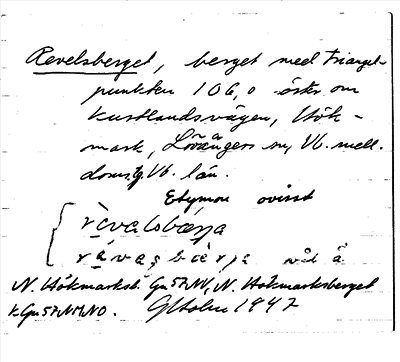 Revelsberget, berget med triangel-
punkten 106,0 öster om
kustlandsvägen, Hök-
mark, Lövångers sn, Vb. mell.
doms. Vb. län.
Etymon ovisst
rèvalsbærja
N. Hökmarksb. Gn 57 NV, N. Hökmarksberget
k. Gn 57 NV NO. G Holm 1947